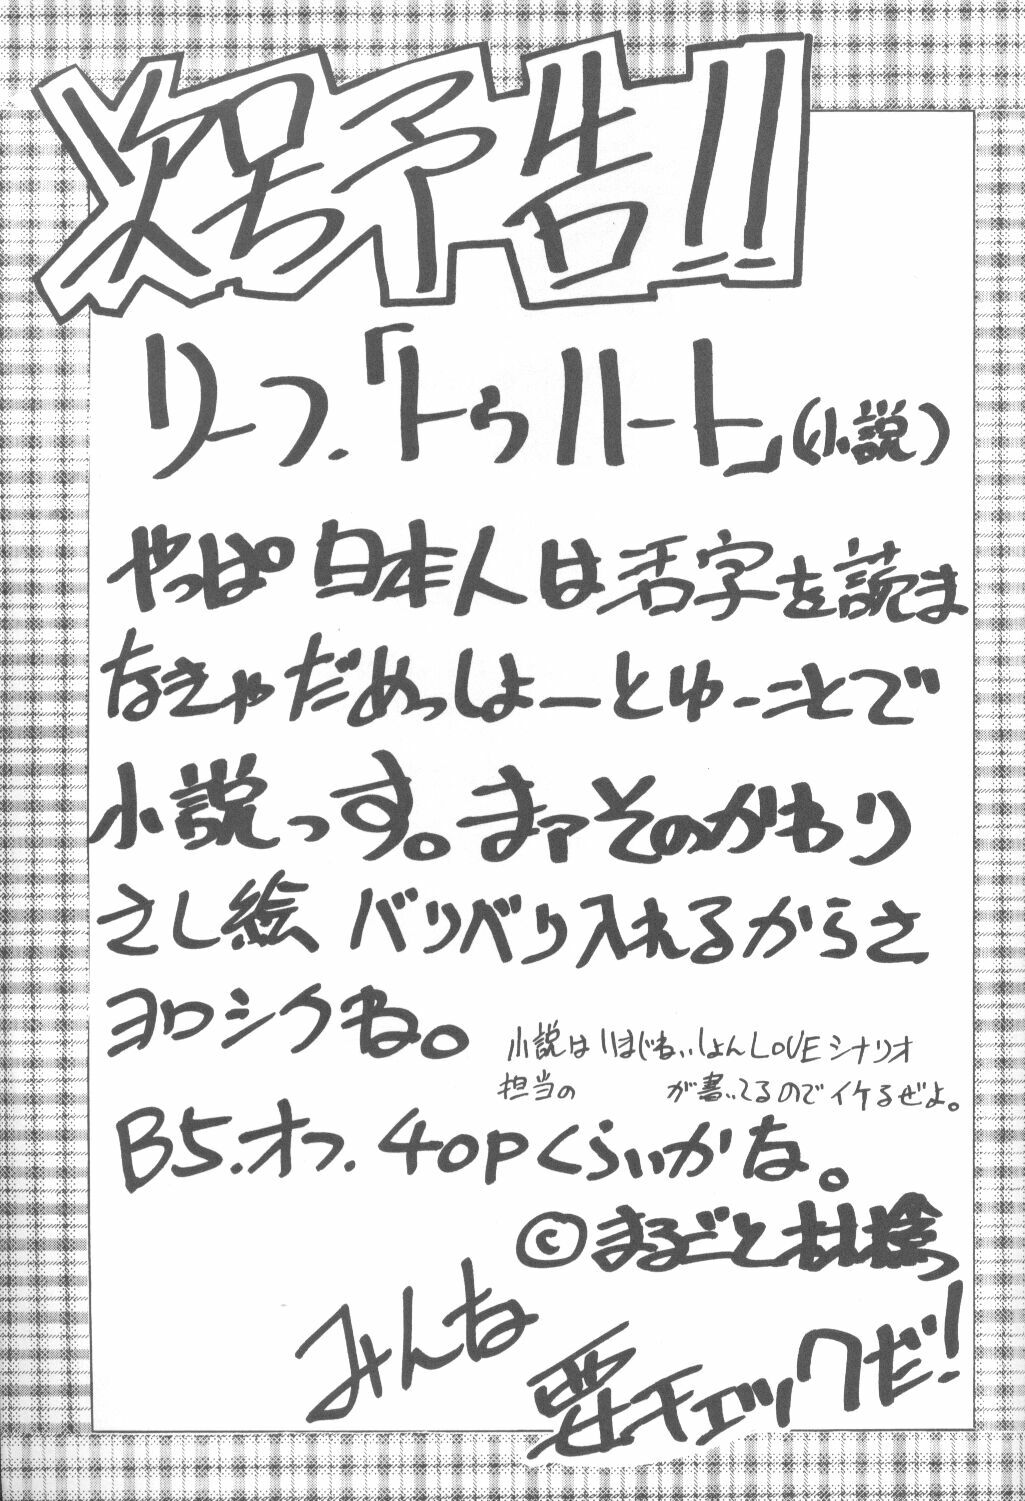 次号予告!!
リーフ.「トゥハート」(小説)
やっぱ日本人は活字を読ま
なきゃだめっしょーとゆーことで
小説っす。まァそのかわり
さし絵 バリバリ入れるからさ
ヨロシクね。
小説はいまじねぃしょんLOVEシナリオ
担当の が書いてるのでイケるぜよ。
B5.オフ.40Pくらいかな。
©まるごと
みんな
要チェックだ!